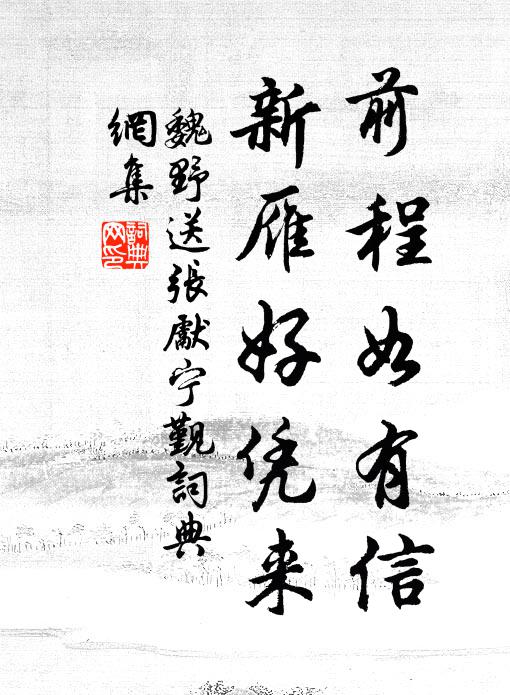 前程如有信
新雁好凭来
魏野送張獻宁觐詞典
網集
詞典
网印